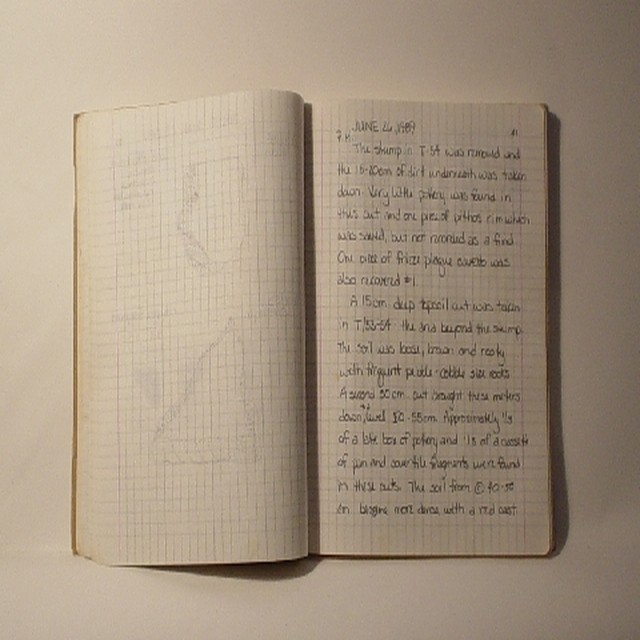 JUNE 26, 1989
The stump in T-54 was removed and
the 15-20cm of dirt underneath was taken
down. Very little pottery was found in
this cut and one piece of pithos rim which
was saved, but not recorded as a find
One piece of frieze plaque cavetto was
also recovered #1.
A 15cm deep topsoil cut was taken
in T/53-54 the area beyond the stump
The soil was loose, brown and rooty
with frequent pebble-cobble size rocks
A second 30cm cut brought these meters
down level 50-55cm. Approximately 1/3
of a box of pottery and 1/3 of a
of pan and cover tile fragments were found
in these cuts. The soil from 40-50
cm became more dense with a red cast.